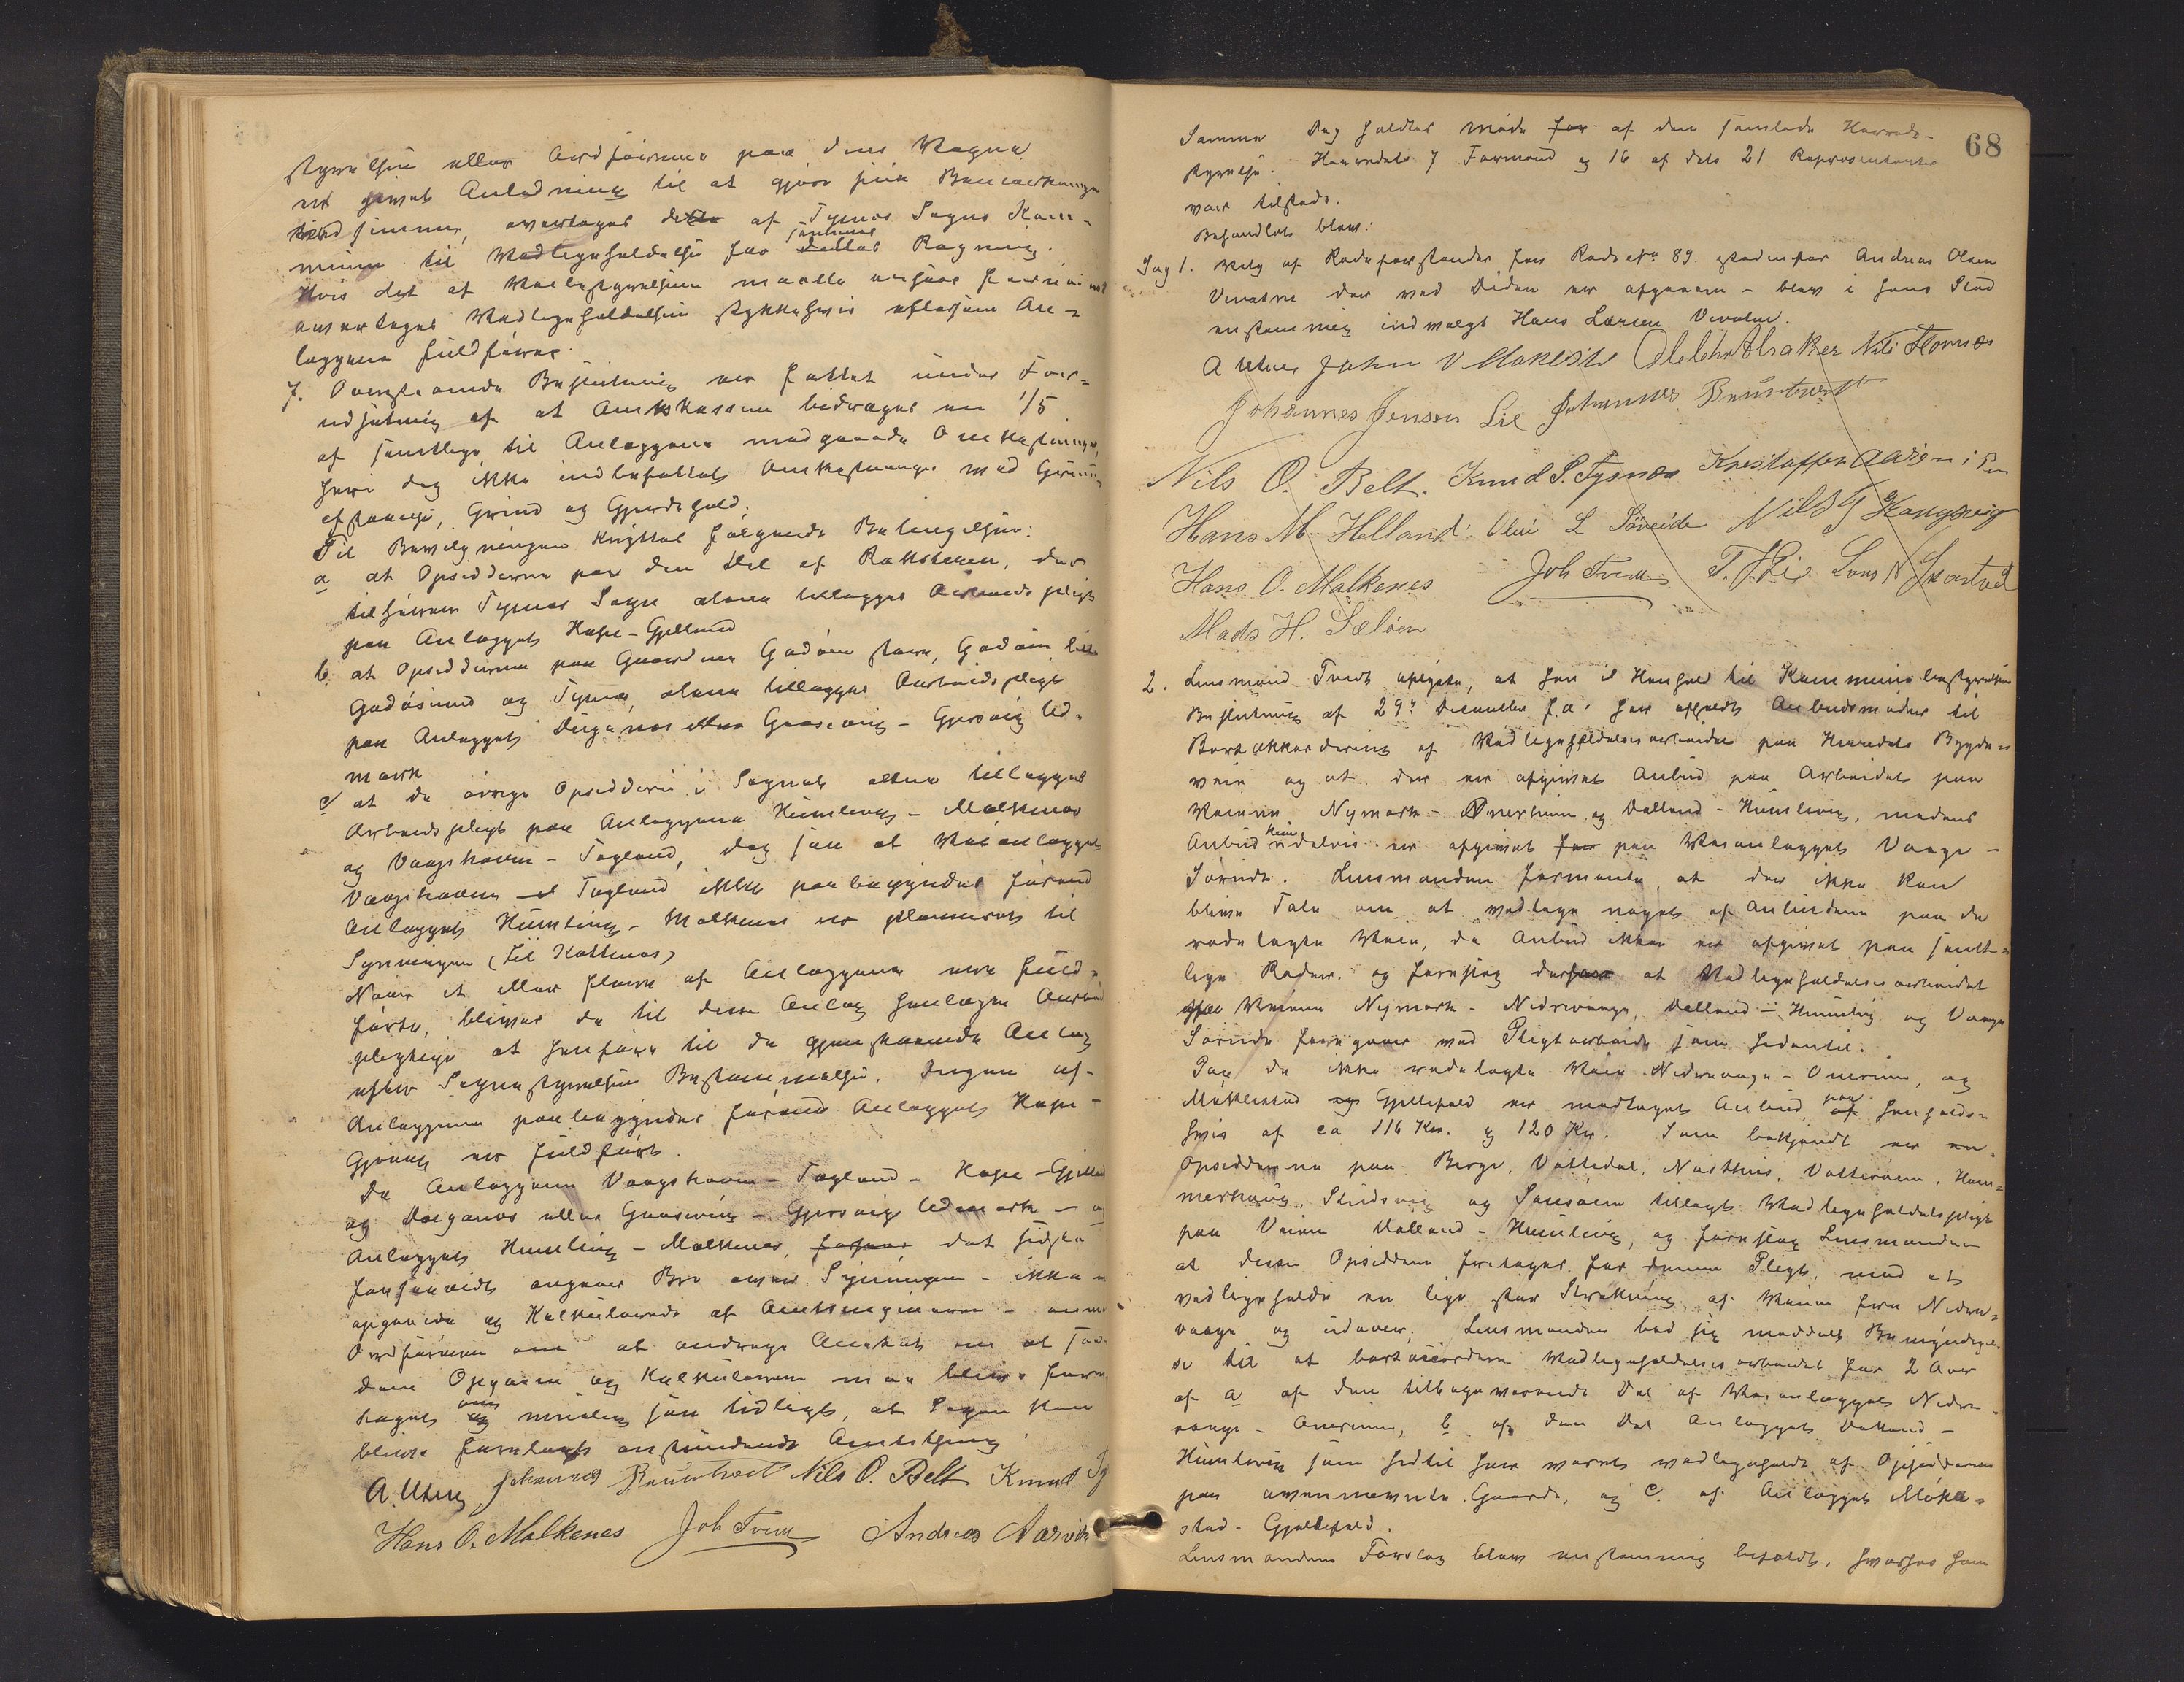 styrelsen eller Ordføreren paa dens Vegne
er givet Anledning til at gjøre sine Bemærkninger
med samme, overtages dette af Tysnes Sogns Kom-
mune til Vedligeholdelse for sammes dettes Regning.
Hvis det af Veibestyrelsen maatte ansees
overtages Vedligeholdelsen stykkevis eftersom An-
læggene fuldføres.
7. Ovenstaaende Beslutning er fattet under For-
udsætning af at Amtskassen bidrager en 1/5
af samtlige til Anlæggene medgaaende Omkostninger,
heri dog ikke indbefattet Omkostninger med Grund-
afstaaelse, Grind og Gjærdehold.
Til Bevilgningen knyttes følgende Betingelser:
a at Opsidderne paa den Del af Rækstøen, der
tilhører Tysnes Sogn alene tillægges Arbeidspligt
paa Anlægget Hope - Gjelland
b. at Opsidderne paa Gaardene Godøen store, Godøen lille
Godøsund og Tysnes, alene tillægges Arbeidspligt
paa Anlægget Duganes eller Gaasevig - Gjersvig Ud-
mark
c at de øvrige Opsiddere i Sognet alene tillægges
Arbeidspligt paa Anlæggene Humlevig - Malkenes
og Vaagshavn - Tegland, dog saa at Veianlægget
Vaagshavn - Tegland ikke paabegyndes førend
Anlægget Humlevig - Malkenes er planeret til
Synningen (til Hattenes)
Naar et eller flere af Anlæggene ere fuld-
førte, bliver de til disse Anlæg henlagte Arbeids
pligtige at henføre til de gjenstaaende Anlæg
efter Sognestyrelsens Bestemmelse. Ingen af
Anlæggene paabegyndes førend Anlægget Hope -
Gjøvaag er fuldført.
Da Anlæggene Vaagshavn - Tegland - Hope - Gjelland
og Duganes eller Gaasevig - Gjersvig Udmark - og
Anlægget Humlevig - Malkenes, det sidste
forsaavidt angaar Bro over Synningen - ikke er
opgaaede og kalkulerede af Amtsingeniøren - anm
Ordføreren om at andrage Amtet om at saa-
dan Opgaaen og Kalkulation maa blive fore-
taget om muligt saa tidligt, at Sagen kan
blive forelagt anstundende Amtsthing.
A. Uthug Johannes Bruntveit Nils O. Belt Knud Ty
Hans O. Malkenes Joh Tveit Andreas Aarvik
68
Samme Dag holdtes Møde for af den samlede Herreds-
styrelse. Herredets 7 Formænd og 16 af dets 21 Repræsentanter
var tilstede.
Behandlet blev:
Sag 1. Valg af Rodeforstander for Rode No 89. istedenfor Andreas Olsen
Vevatne der ved Døden er afgaaen - blev i hans Sted
enstemmig indvalgt Hans Larsen Vevatne.
A Uthug John V Mokleste Ole Chr Abraker Nils Flornes
Johannes Jensen Lie Johannes Bruntveit
Nils O. Belt. Knud S. Tysnes Kristoffer
Hans M. Helland Oluf L Søreide Nils G Kongsvig
Hans O. Malkenes Joh Tveit T. Hie Lars N Skorstad
Mads H. Sæløen
2. Lensmand Tveit oplyste, at han i Henhold til Kommunebestyrelsens
Beslutning af 29de December f.a. har afholdt Anbudsmøder til
Bortakkordering af Vedligeholdelsesarbeidet paa Herredets Bygde-
veie og at der er afgivet Anbud paa Arbeidet paa
Veiene Nymark - Onerheim og Dalland - Humlevig, medens
Anbud kun delvis er afgivet for paa Veianlægget Vaage -
Søreide. Lensmanden formente, at der ikke kan
blive Tale om at vedtage noget af Anbudene paa de
rodelagte Veie, da Anbud ikke er afgivet paa samt-
lige Roder. og foreslog derfor at Vedligeholdelsesarbeidet
paa Veiene Nymark - Nedrevaage, Dalland - Humlevig og Vaage
Søreide foregaar ved Pligtarbeide som hidentil.
Paa de ikke rodelagte Veie Nedrevaage - Onerheim, og
Møklestad og Gjellefald er modtaget Anbud, paa af henholds-
vis af ca 116 Kr. og 120 Kr. Som bekjendt er en-
Opsidderne paa Berge, Vattedal, Næsthus, Vatterøen, Hom-
merhaug, Skudsvig og Sansøen tillagt Vedligeholdelsespligt
paa Veien Dalland - Humlevig, og foreslog Lensmanden
at disse Opsiddere fritages for denne Pligt, mod at
vedligeholde en lige stor Strækning af Veien fra Nedre-
vaage og udover, Lensmanden bad sig meddelt Bemyndigel-
se til at bortaccordere Vedligeholdelsesarbeidet for 2 Aar
af a af den tilbageværende Del af Veianlægget Nedre
vaage - Onerheim, b af den Del Anlægget Dalland -
Humlevig som hidtil har været vedligeholdt af Opsidderne
paa ovennævnte Gaarde, og c. af Anlægget Møkle-
stad - Gjellefald.
Lensmandens Forslag blev enstemmig bifaldt, hvorhos ham